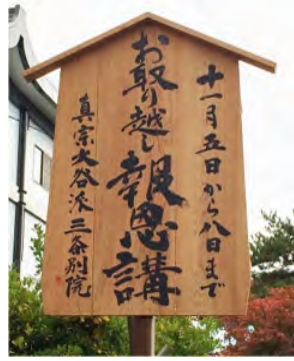 十一月五日から八日まで
お取り越し報恩講
真宗大谷派三条別院